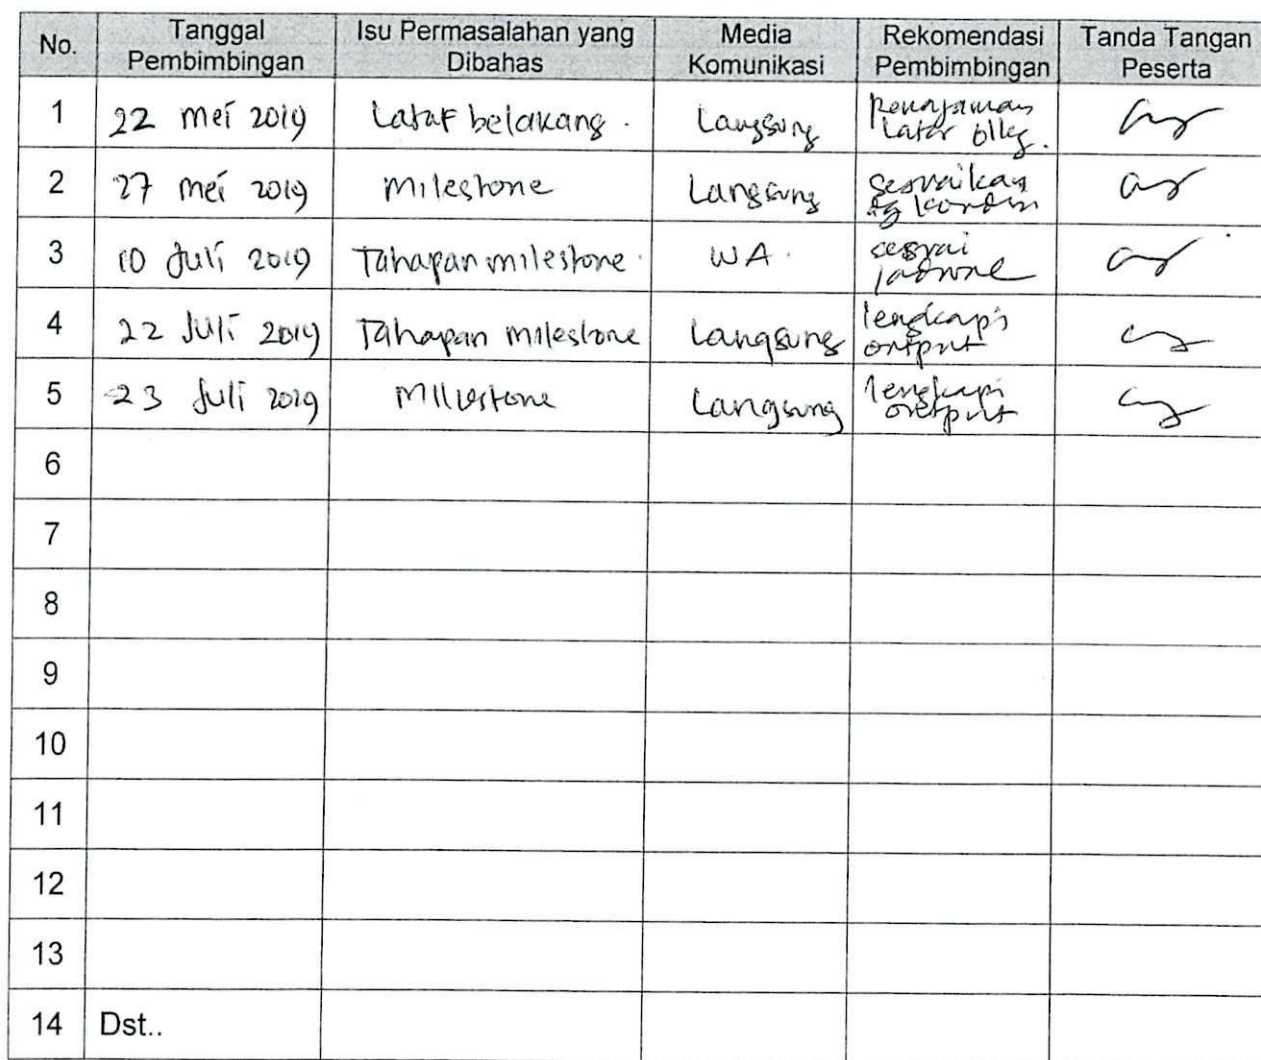 No. Tanggal Pembimbingan Isu Permasalahan yang Dibahas Media Komunikasi Rekomendasi Pembimbingan Tanda Tangan Peserta
1 22 mei 2019 Latar belakang. Langsung Penajaman Latar blkg.
2 27 mei 2019 milestone Langsung sesuaikan dg kondisi
3 10 Juli 2019 Tahapan milestone. WA. sesuai
4 22 Juli 2019 Tahapan milestone Langsung lengkapi output
5 23 Juli 2019 Millestone Langsung lengkapi output
6
7
8
9
10
11
12
13
14 Dst..